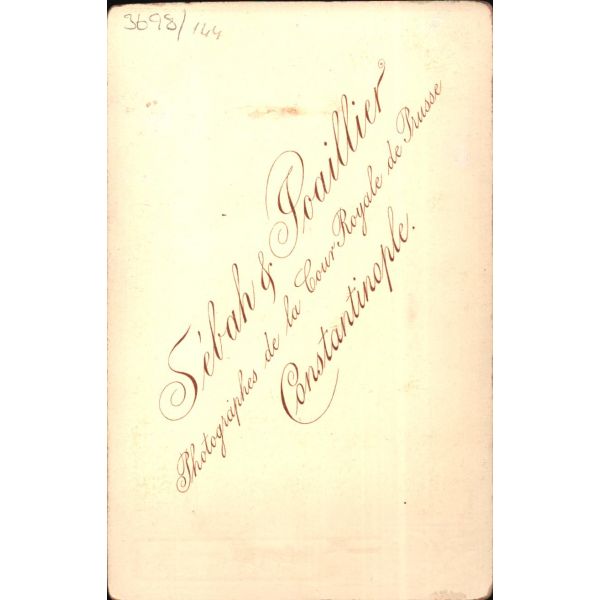 3698/144
Sébah & Joaillier
Photographes de la Cour Royale de Prusse
Constantinople.